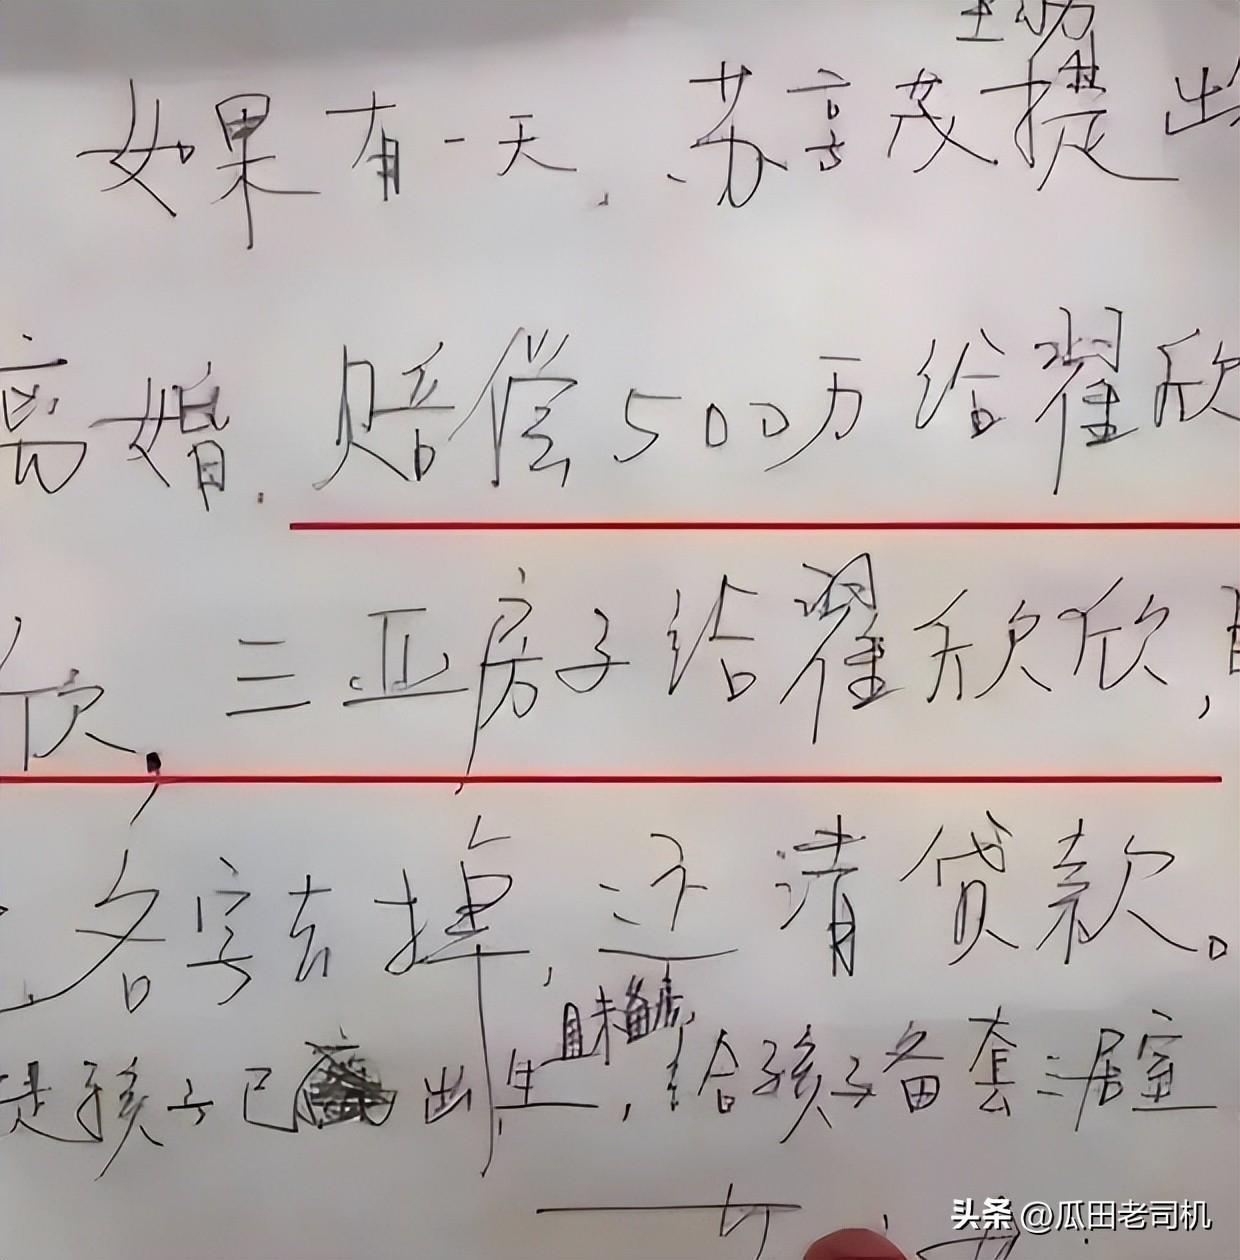 主动
如果有一天,苏享茂提出
离婚.赔偿500万给翟欣
欣,三亚房子给翟欣欣,
名字去掉,还清贷款。
且未备房,
是孩子已出生,给孩子备套三居室
头条 @瓜田老司机